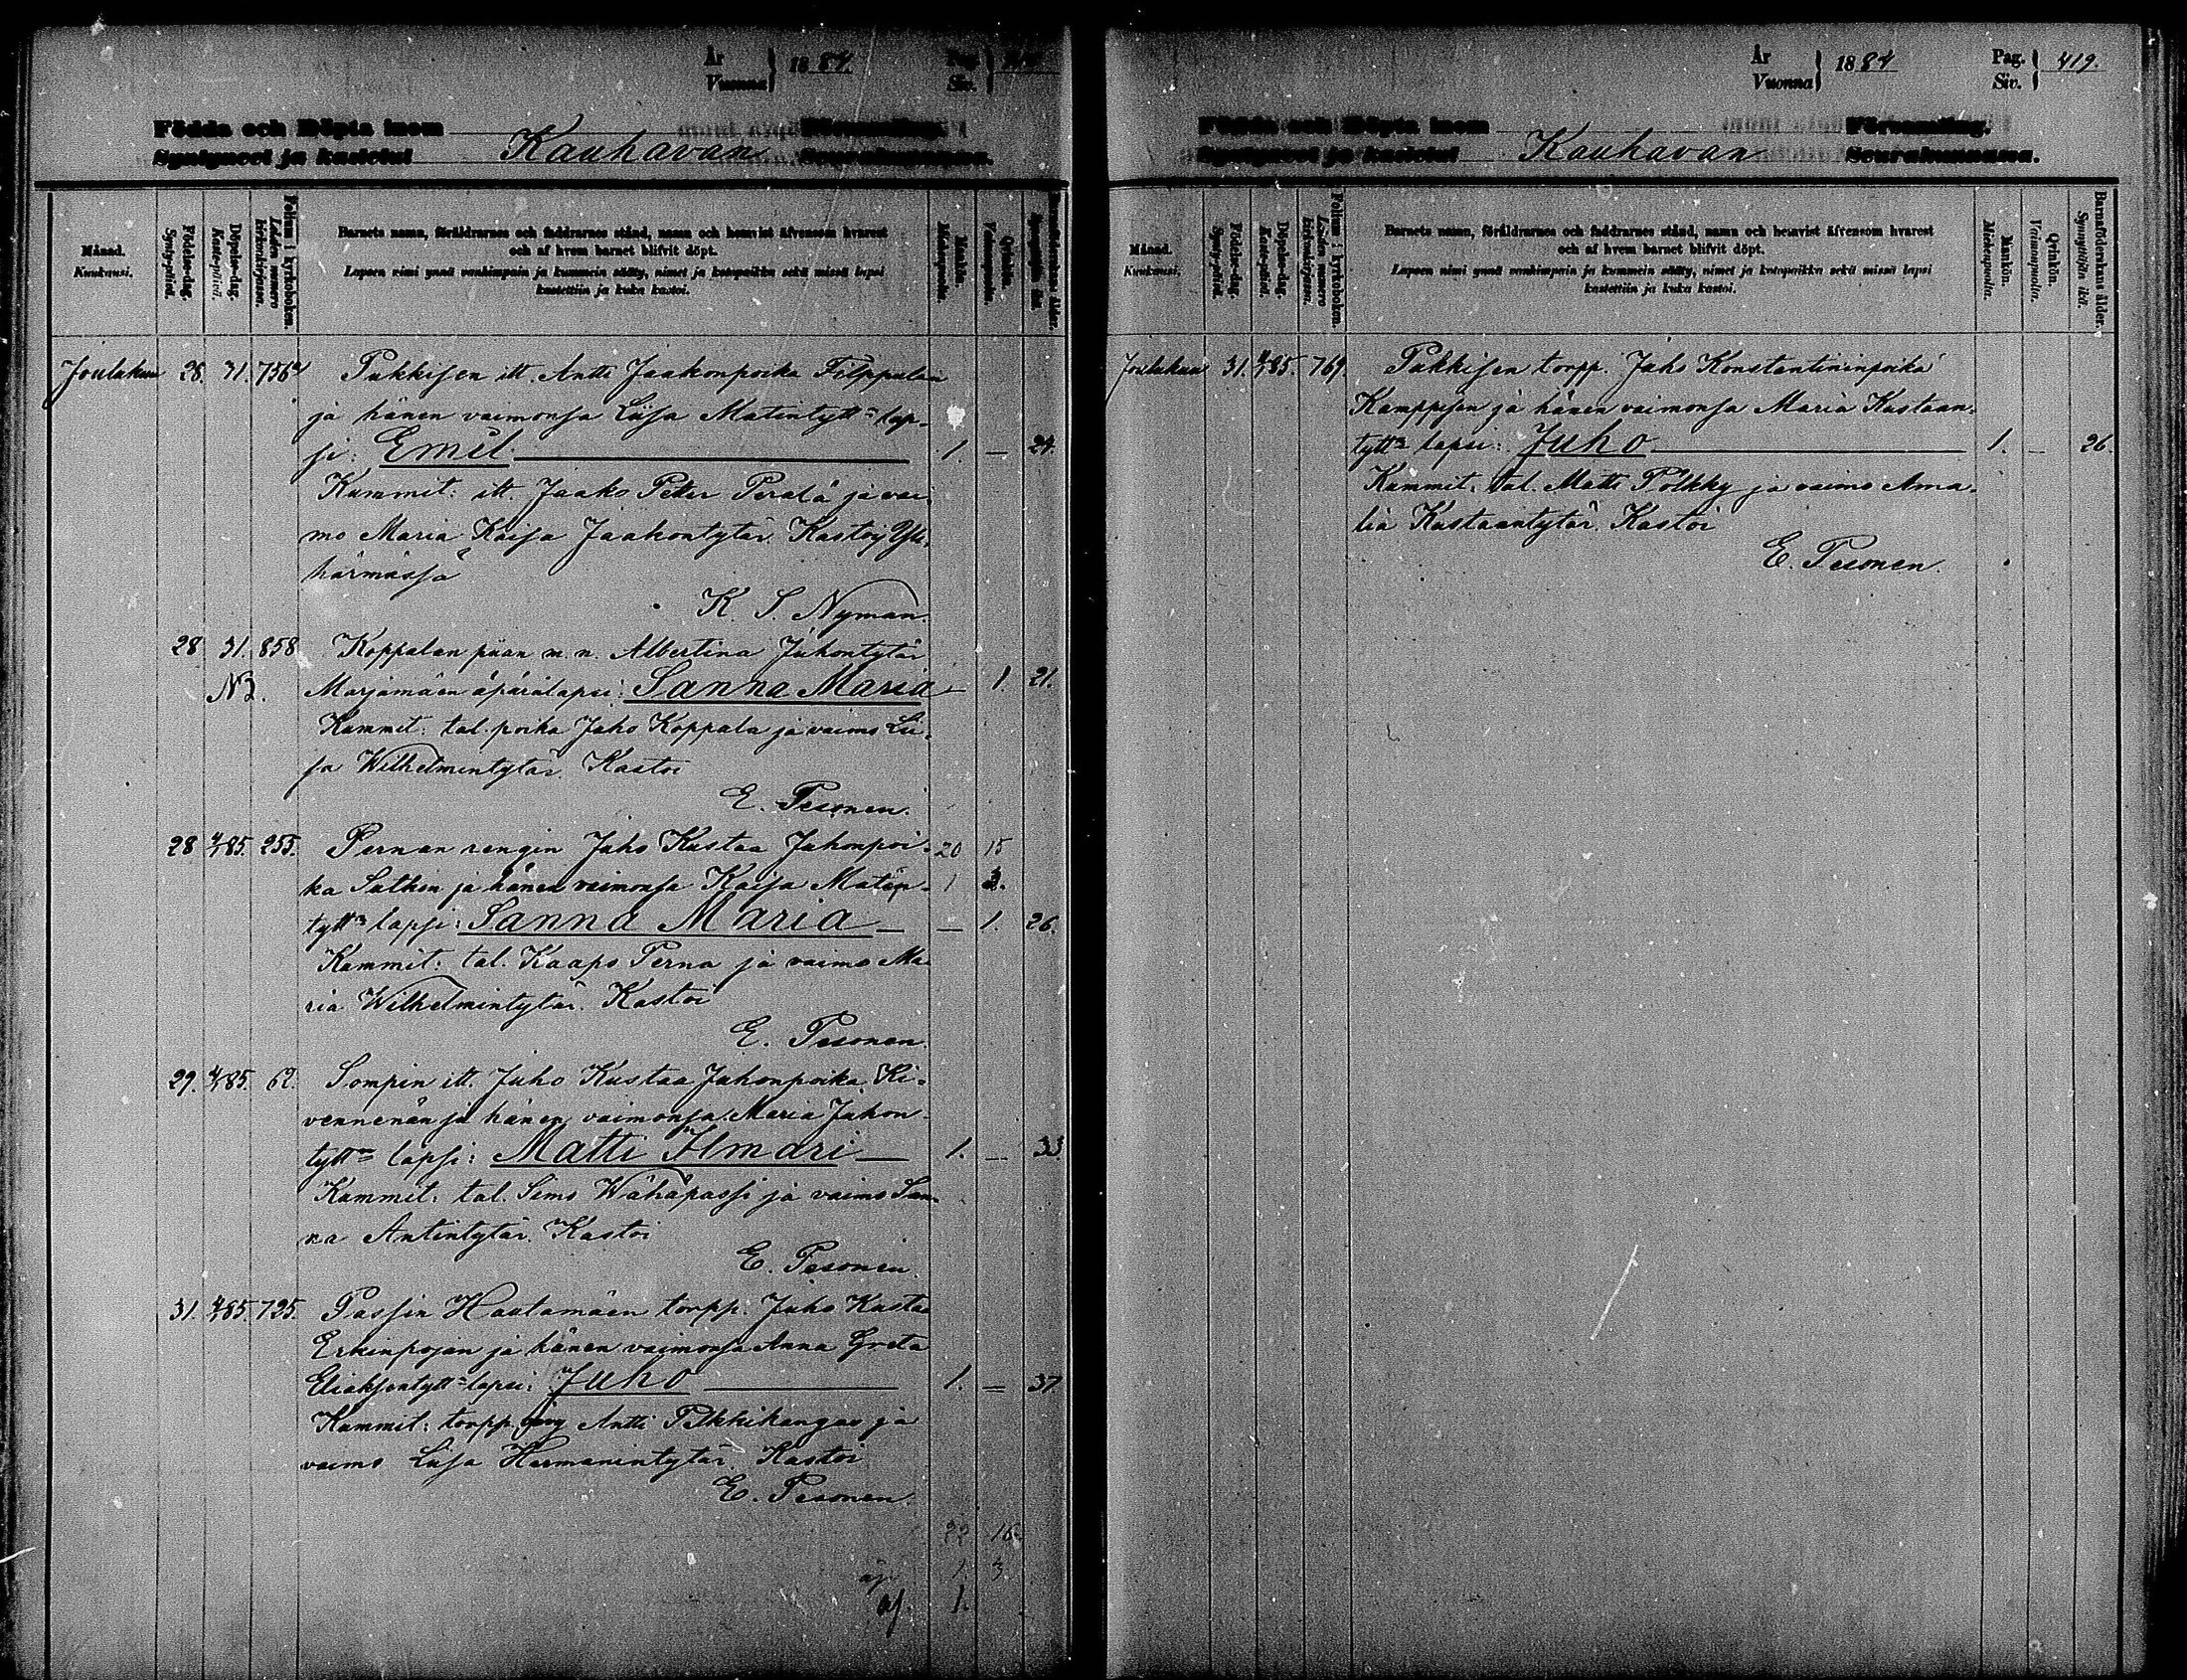 År
Vuonna } 1884.
Pag.
Siv. }
Födda och Döpta inom
Syntyneet ja kastetut Kauhavan
Församling.
Seurakunnassa.
Månad.
Kuukausi.
Födelse-dag.
Synty-päivä.
Döpelse-dag.
Kaste-päivä.
Folium i kyrkoboken.
Lehden numero
kirkonkirjassa.
Barnets namn, föräldrarnes och faddrarnes stånd, namn och hemvist äfvensom hvarest
och af hvem barnet blifvit döpt.
Lapsen nimi ynnä vanhimpain ja kummein sääty, nimet ja kotopaikka sekä missä lapsi
kastettiin ja kuka kastoi.
Mankön.
Miehenpuolta.
Qvinkön.
Vaimonpuolta.
Barnaföderskans ålder.
Synnyttäjän ikä.
Joulukuu 28. 31. 756 Pukkisen itt. Antti Jaakonpoika Filppulan
ja hänen vaimonsa Liisa Matintytt:n lap-
si: Emil 1. — 24.
Kummit: itt. Jaako Peter Perälä ja vai-
mo Maria Kaisa Jaakontytär. Kastoi Yli-
härmässä
K. S. Nyman.
28 31. 858 Koppalan piian n. n. Albertina Juhontytär
N2. Marjamäen äpärälapsi: Sanna Maria — 1. 21.
Kummit: tal. poika Juho Koppala ja vaimo Lii-
sa Wilhelmintytär. Kastoi
E. Pesonen.
28 4/1 85. 255. Pernan rengin Juho Kustaa Juhonpoi- 20 15
ka Suthin ja hänen vaimonsa Kaisa Matin- 1
tytt:n lapsi: Sanna Maria — — 1. 26.
Kummit: tal. Kaapo Perna ja vaimo Ma-
ria Wilhelmintytär. Kastoi
E. Pesonen.
29. 4/1 85. 62. Sompin itt. Juho Kustaa Juhonpoika Ki-
vennenän ja hänen vaimonsa Maria Juhon-
tytt:n lapsi: Matti Ilmari — 1. — 33
Kummit: tal. Simo Wähäpassi ja vaimo San-
na Antintytär. Kastoi
E. Pesonen.
31. 4/1 85. 725. Passin Hautamäen torpp. Juho Kustaa
Erkinpojan ja hänen vaimonsa Anna Greta
Eliaksentytt:n lapsi: Juho 1. — 37
Kummit: torpp. Antti Pelkkikangas ja
vaimo Liisa Hermanintytär. Kastoi
E. Pesonen.
22 16
äp. 1 3
1.
År
Vuonna } 1884
Pag.
Siv. } 419.
Födda och Döpta inom
Syntyneet ja kastetut Kauhavan
Församling.
Seurakunnassa.
Månad.
Kuukausi.
Födelse-dag.
Synty-päivä.
Döpelse-dag.
Kaste-päivä.
Folium i kyrkoboken.
Lehden numero
kirkonkirjassa.
Barnets namn, föräldrarnes och faddrarnes stånd, namn och hemvist äfvensom hvarest
och af hvem barnet blifvit döpt.
Lapsen nimi ynnä vanhimpain ja kummein sääty, nimet ja kotopaikka sekä missä lapsi
kastettiin ja kuka kastoi.
Mankön.
Miehenpuolta.
Qvinkön.
Vaimonpuolta.
Barnaföderskans ålder.
Synnyttäjän ikä.
Joulukuu 31. 4/1 85. 769. Pukkisen torpp. Juho Konstantininpoika
Kamppisen ja hänen vaimonsa Maria Kustaan-
tytt:n lapsi: Juho 1. — 26.
Kummit: tal. Matti Pölkky ja vaimo Ama-
lia Kustaantytär. Kastoi
E. Pesonen.